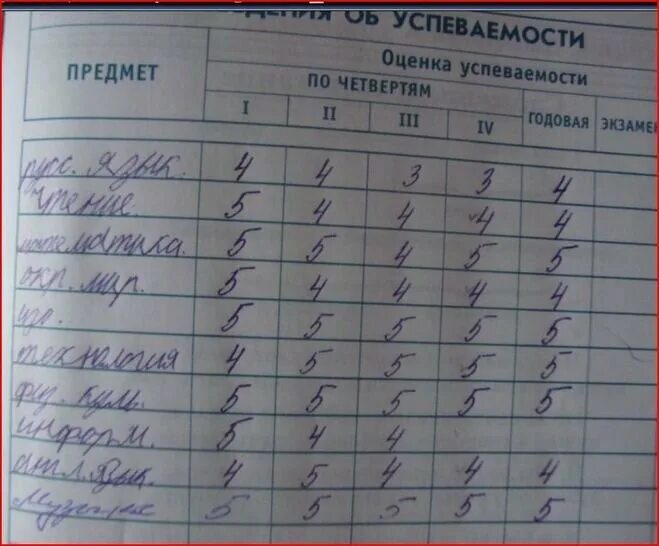 ЕДЕНИЯ ОБ УСПЕВАЕМОСТИ
ПРЕДМЕТ Оценка успеваемости
ПО ЧЕТВЕРТЯМ ГОДОВАЯ ЭКЗАМЕН
I II III IV
русс. язык. 4 4 3 3 4
Чтение. 5 4 4 4 4
математика. 5 5 4 5 5
окр. мир. 5 4 4 4 4
изо.. 5 5 5 5 5
технология 4 5 5 5 5
физ. куль. 5 5 5 5 5
информ. 5 4 4
англ. язык. 4 5 4 4 4
Музыка 5 5 5 5 5